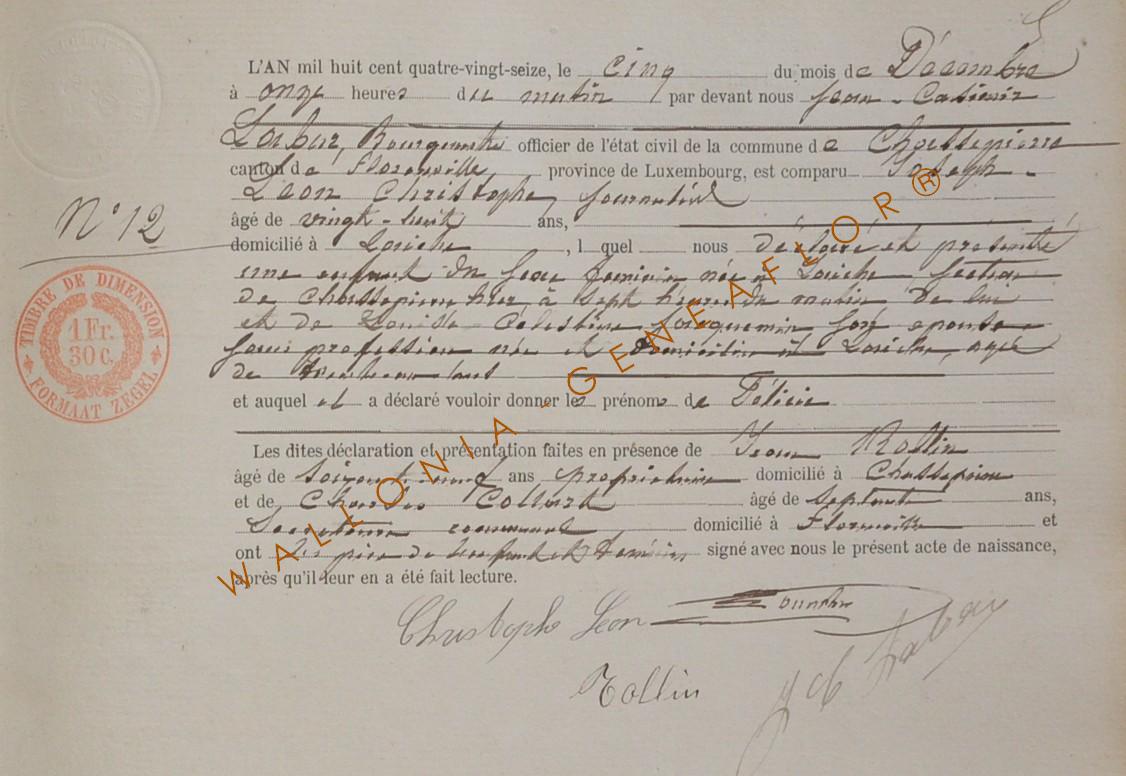 L'AN mil huit cent quatre-vingt-seize, le cinq du mois de Décembre
à onze heures du matin par devant nous Jean-Casimir
Bourgmestre officier de l'état civil de la commune de Chassepierre
canton de Florenville, province de Luxembourg, est comparu Joseph-
Léon Christophe, journalier
N° 12
âgé de vingt-huit ans,
domicilié à Laiche, lequel nous a déclaré et présenté
une enfant du sexe féminin née à Laiche, section
de Chassepierre hier à sept heures du matin de lui
et de Célestine Jacquemin son épouse
sans profession née et domiciliée à Laiche, âgée
de ans
TIMBRE DE DIMENSION
1 Fr.
30 c.
FORMAAT ZEGEL
et auquel il a déclaré vouloir donner les prénoms de Félicie
Les dites déclaration et présentation faites en présence de Jean Rollin
âgé de ans, propriétaire domicilié à Chassepierre
et de Charles Collard âgé de septante ans,
Secrétaire communal domicilié à Florenville et
ont les père de l'enfant et témoins, signé avec nous le présent acte de naissance,
après qu'il leur en a été fait lecture.
Christophe Léon
Rollin
WALLONIA - GENEAFLOR®